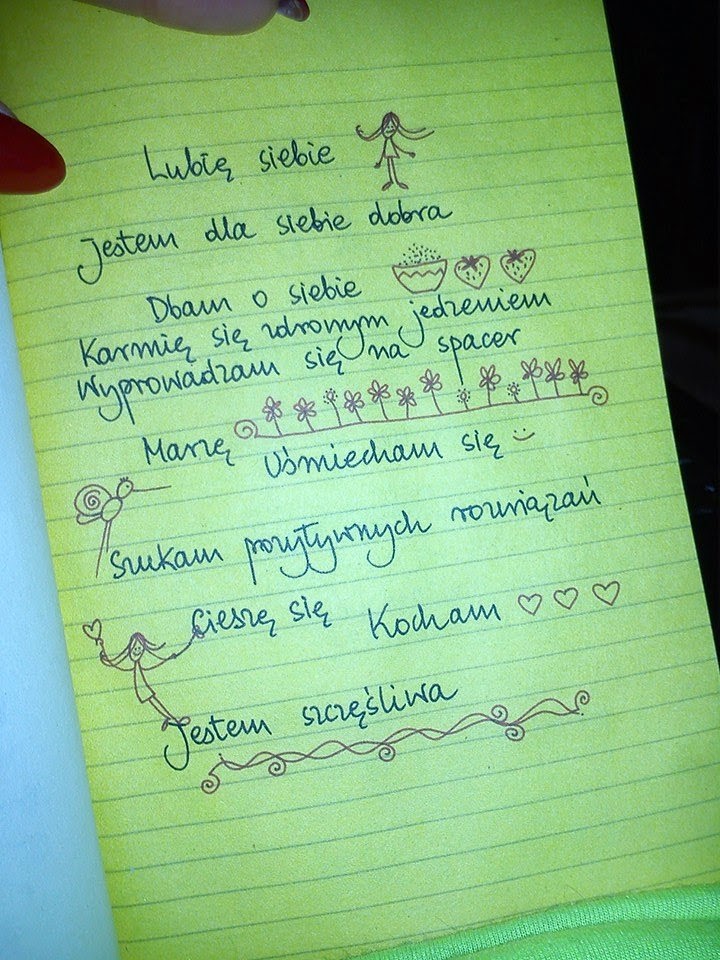 Lubię siebie
Jestem dla siebie dobra
Dbam o siebie
Karmię się zdrowym jedzeniem
Wyprowadzam się na spacer
Marzę Uśmiecham się :)
Szukam pozytywnych rozwiązań
Cieszę się Kocham ♡ ♡ ♡
Jestem szczęśliwa